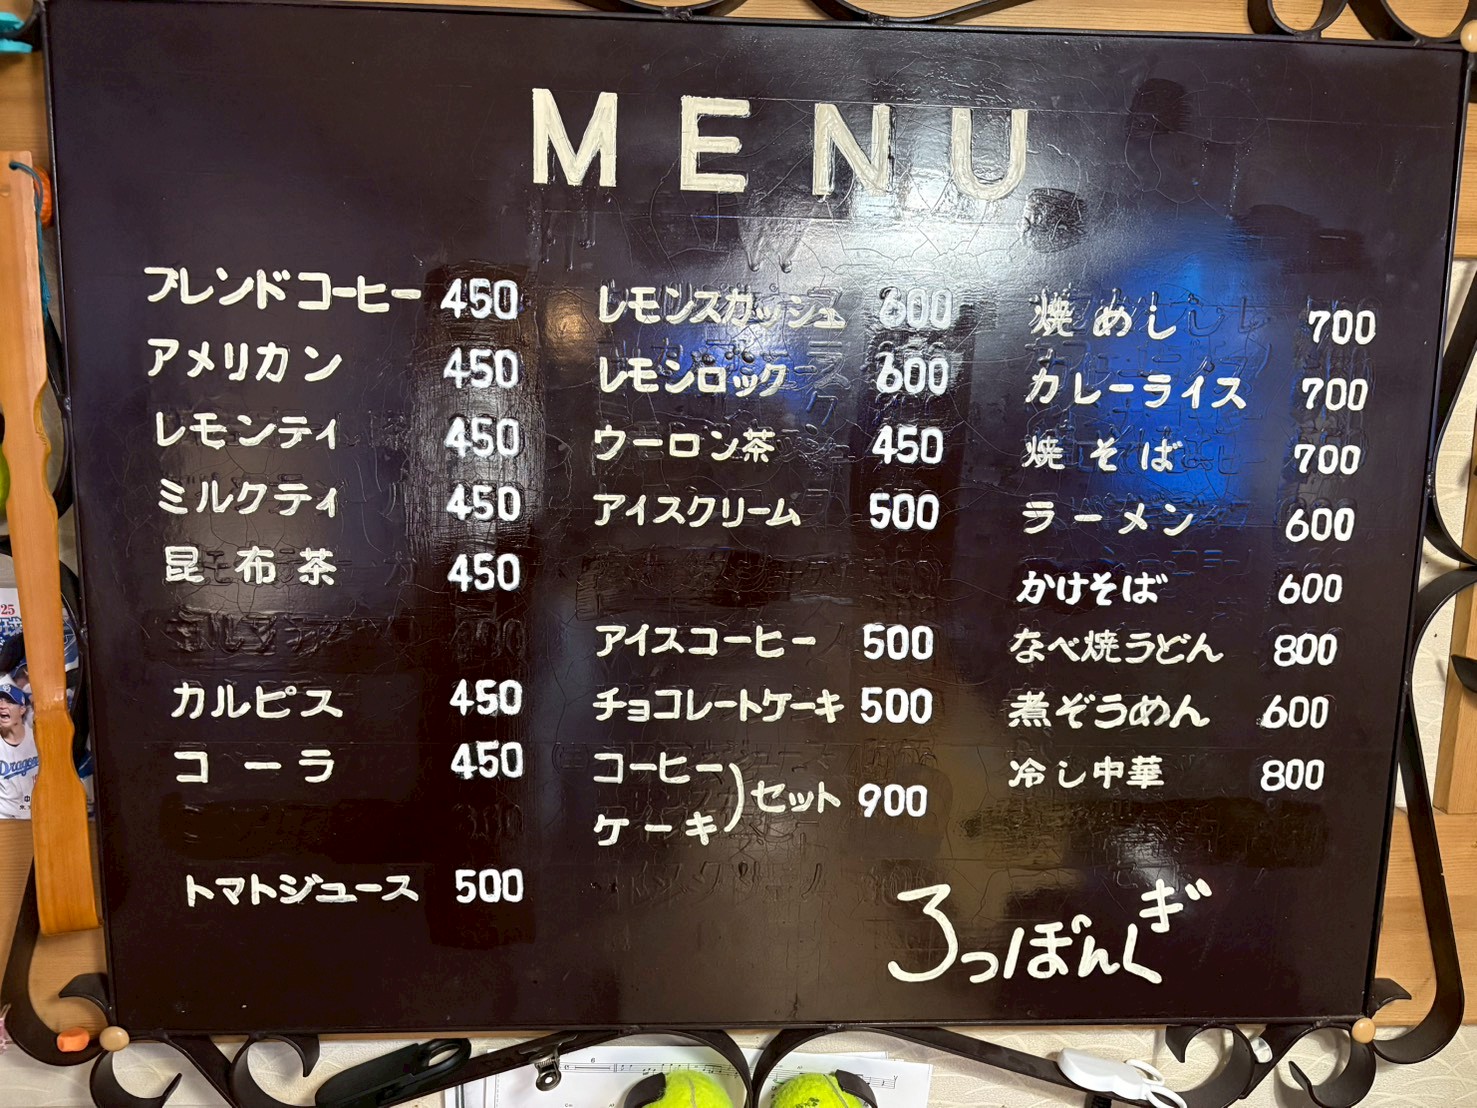 MENU
ブレンドコーヒー 450
アメリカン 450
レモンティ 450
ミルクティ 450
昆布茶 450
カルピス 450
コーラ 450
トマトジュース 500
レモンスカッシュ 600
レモンロック 600
ウーロン茶 450
アイスクリーム 500
アイスコーヒー 500
チョコレートケーキ 500
コーヒー
ケーキ
)セット 900
焼めし 700
カレーライス 700
焼そば 700
ラーメン 600
かけそば 600
なべ焼うどん 800
煮ぞうめん 600
冷し中華 800
ろっぽんぎ
25
Dragon